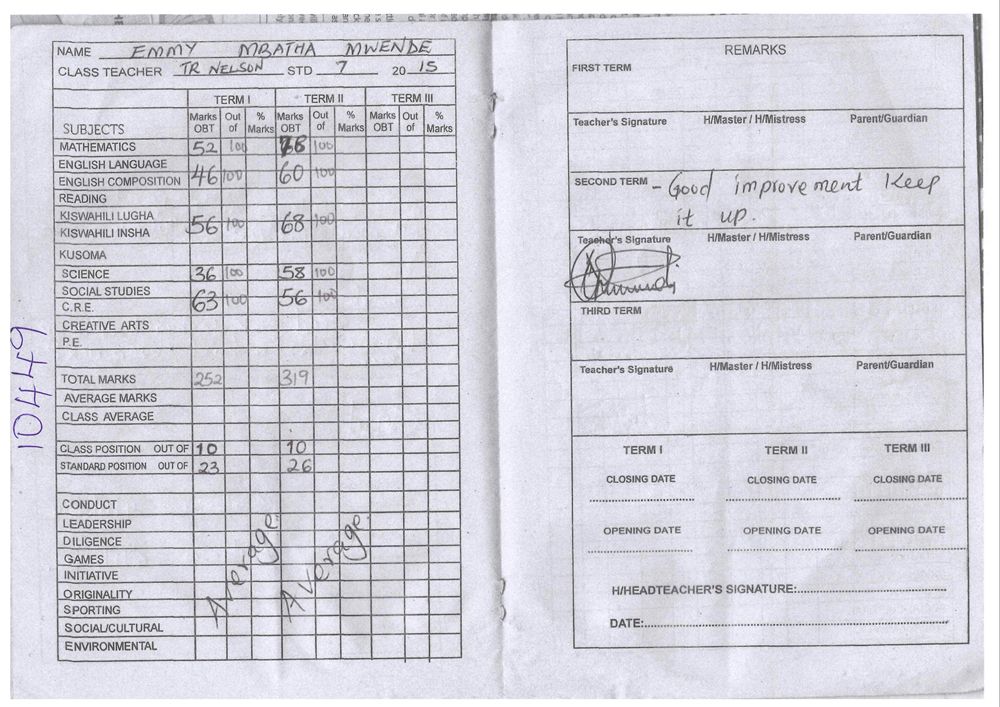 NAME EMMY MBATHA MWENDE
CLASS TEACHER TR NELSON STD 7 20 15
TERM I TERM II TERM III
SUBJECTS Marks OBT Out of % Marks Marks OBT Out of % Marks Marks OBT Out of % Marks
MATHEMATICS 52 100 78 100
ENGLISH LANGUAGE
ENGLISH COMPOSITION 46 100 60 100
READING
KISWAHILI LUGHA
KISWAHILI INSHA 56 100 68 100
KUSOMA
SCIENCE 36 100 58 100
SOCIAL STUDIES
C.R.E. 63 100 56 100
CREATIVE ARTS
P.E.
TOTAL MARKS 252 319
AVERAGE MARKS
CLASS AVERAGE
CLASS POSITION OUT OF 10 10
STANDARD POSITION OUT OF 23 26
CONDUCT
LEADERSHIP
DILIGENCE
GAMES
INITIATIVE
ORIGINALITY
SPORTING
SOCIAL/CULTURAL
ENVIRONMENTAL
Average Average
10449
REMARKS
FIRST TERM
Teacher's Signature H/Master / H/Mistress Parent/Guardian
SECOND TERM - Good improvement Keep
it up.
Teacher's Signature H/Master / H/Mistress Parent/Guardian
THIRD TERM
Teacher's Signature H/Master / H/Mistress Parent/Guardian
TERM I TERM II TERM III
CLOSING DATE CLOSING DATE CLOSING DATE
OPENING DATE OPENING DATE OPENING DATE
H/HEADTEACHER'S SIGNATURE:
DATE: